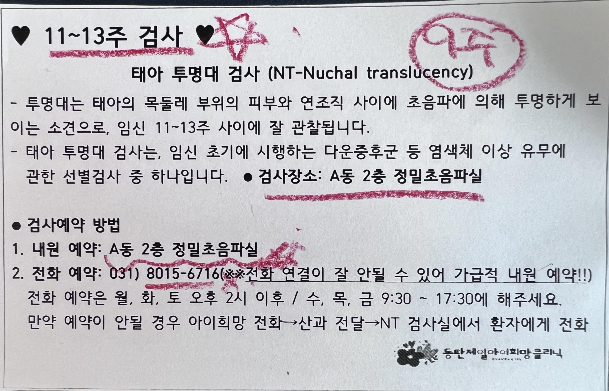 ♥ 11~13주 검사 ♥
9주
태아 투명대 검사 (NT-Nuchal translucency)
- 투명대는 태아의 목둘레 부위의 피부와 연조직 사이에 초음파에 의해 투명하게 보
이는 소견으로, 임신 11~13주 사이에 잘 관찰됩니다.
- 태아 투명대 검사는, 임신 초기에 시행하는 다운증후군 등 염색체 이상 유무에
관한 선별검사 중 하나입니다. ● 검사장소: A동 2층 정밀초음파실
● 검사예약 방법
1. 내원 예약: A동 2층 정밀초음파실
2. 전화 예약: 031) 8015-6716(※※전화 연결이 잘 안될 수 있어 가급적 내원 예약!!)
전화 예약은 월, 화, 토 오후 2시 이후 / 수, 목, 금 9:30 ~ 17:30에 해주세요.
만약 예약이 안될 경우 아이희망 전화→산과 전달→NT 검사실에서 환자에게 전화
동탄제일아이희망클리닉